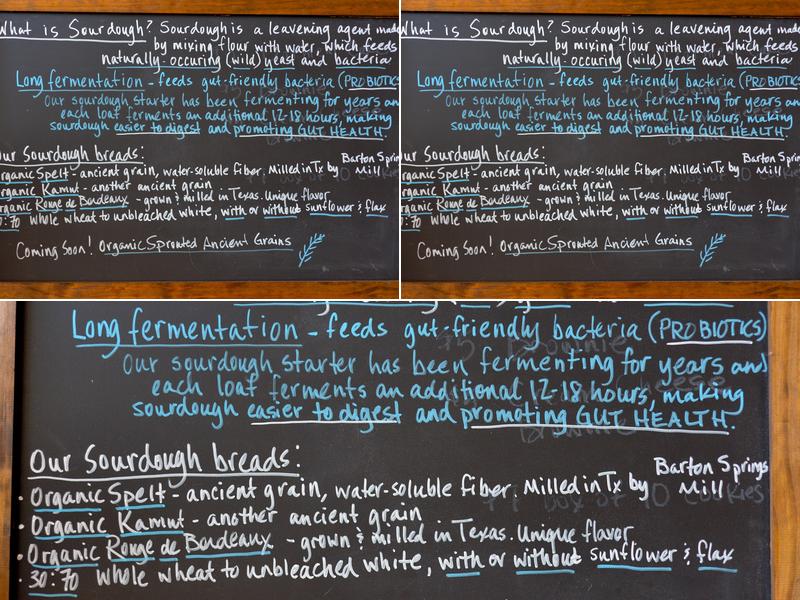 What is Sourdough? Sourdough is a leavening agent made
by mixing flour with water, which feeds
naturally-occuring (wild) yeast and bacteria
Long fermentation - feeds gut-friendly bacteria (PROBIOTICS
Our sourdough starter has been fermenting for years an
each loaf ferments an additional 12-18 hours, making
sourdough easier to digest and promoting GUT HEALTH.
Our Sourdough breads:
Organic Spelt - ancient grain, water-soluble fiber Milled in Tx by Barton Springs Mill
Organic Kamut - another ancient grain
Organic Rouge de Bordeaux - grown & milled in Texas. Unique flavor
30:70 whole wheat to unbleached white, with or without sunflower & flax
Coming Soon! Organic Sprouted Ancient Grains
What is Sourdough? Sourdough is a leavening agent made
by mixing flour with water, which feeds
naturally-occuring (wild) yeast and bacteria
Long fermentation - feeds gut-friendly bacteria (PROBIOTICS
Our sourdough starter has been fermenting for years an
each loaf ferments an additional 12-18 hours, making
sourdough easier to digest and promoting GUT HEALTH.
Our Sourdough breads:
Organic Spelt - ancient grain, water-soluble fiber Milled in Tx by Barton Springs Mill
Organic Kamut - another ancient grain
Organic Rouge de Bordeaux - grown & milled in Texas. Unique flavor
30:70 whole wheat to unbleached white, with or without sunflower & flax
Coming Soon! Organic Sprouted Ancient Grains
Long fermentation - feeds gut-friendly bacteria (PROBIOTICS)
Our sourdough starter has been fermenting for years and
each loaf ferments an additional 12-18 hours, making
sourdough easier to digest and promoting GUT HEALTH.
Our Sourdough breads:
· Organic Spelt - ancient grain, water-soluble fiber Milled in Tx by Barton Springs Mill
· Organic Kamut - another ancient grain
· Organic Rouge de Bordeaux - grown & milled in Texas. Unique flavor
· 30:70 whole wheat to unbleached white, with or without sunflower & flax